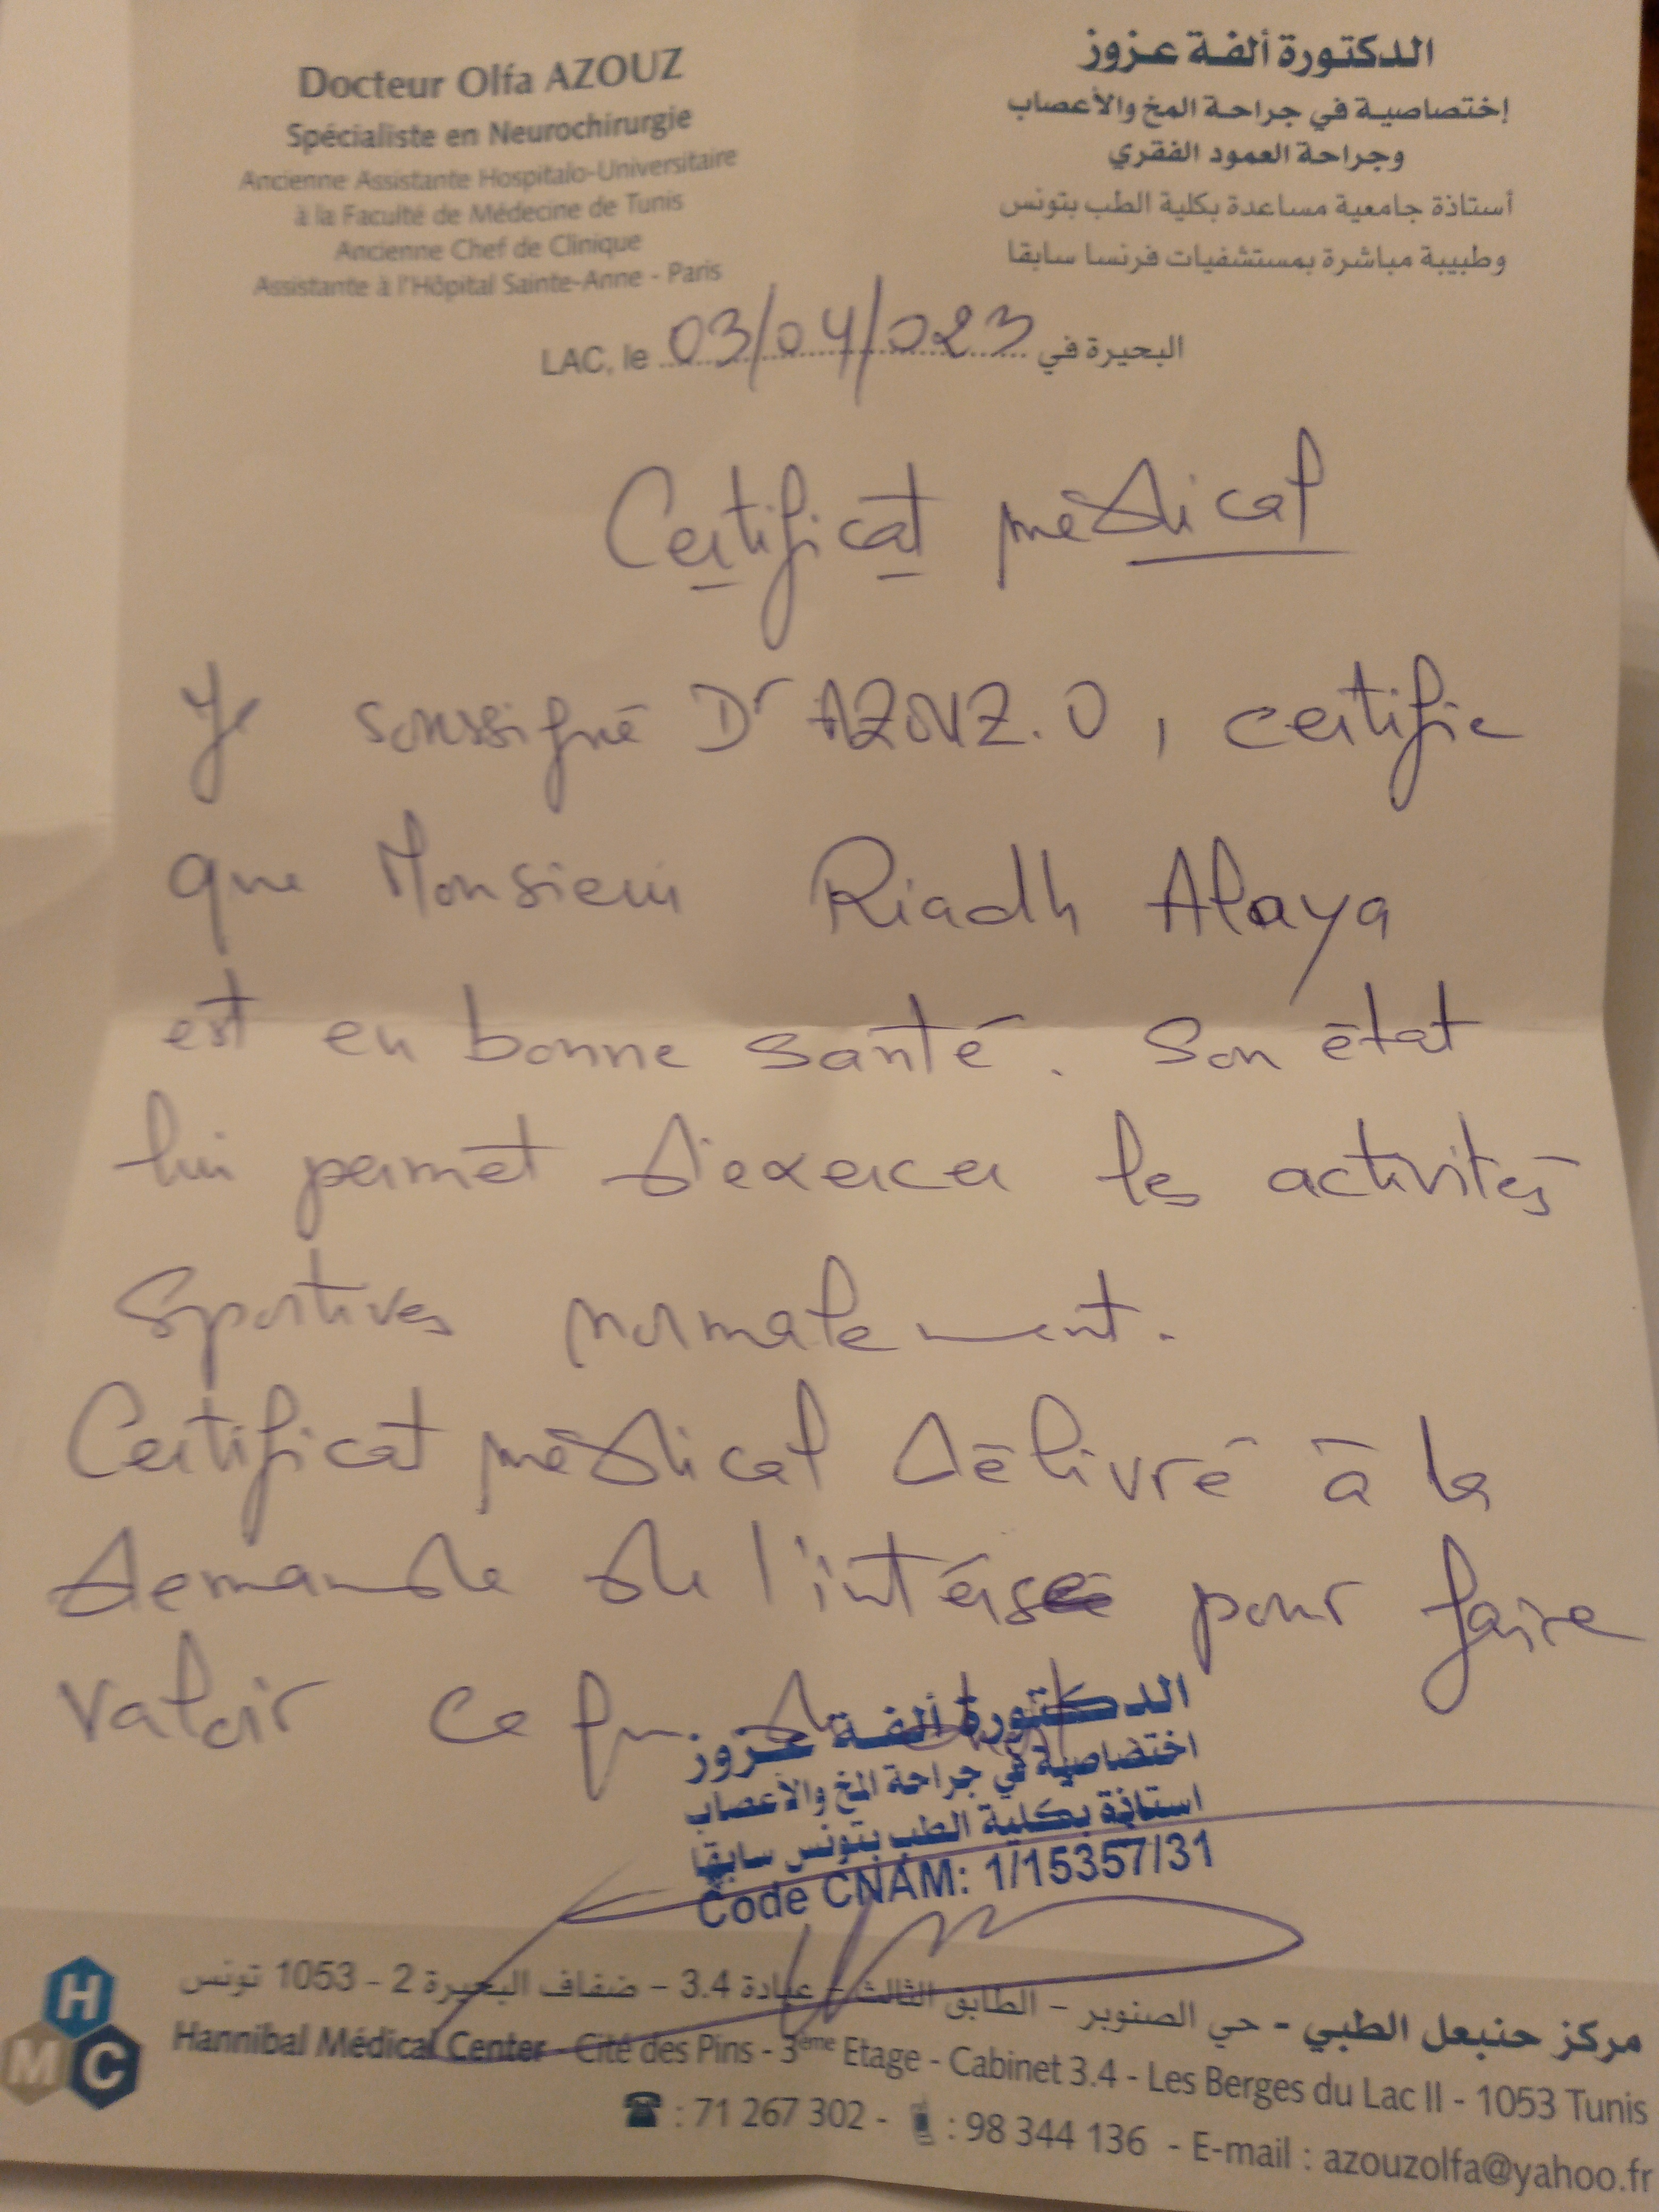 Docteur Olfa AZOUZ
Spécialiste en Neurochirurgie
Ancienne Assistante Hospitalo-Universitaire
à la Faculté de Médecine de Tunis
Ancienne Chef de Clinique
Assistante à l'Hôpital Sainte-Anne - Paris
الدكتورة ألفة عزوز
إختصاصية في جراحة المخ والأعصاب
وجراحة العمود الفقري
أستاذة جامعية مساعدة بكلية الطب بتونس
وطبيبة مباشرة بمستشفيات فرنسا سابقا
LAC, le 03/04/023 البحيرة في
Certificat médical
Je soussigné Dr AZOUZ.O, certifie
que Monsieur Riadh Alaya
est en bonne santé. Son état
lui permet d'exercer les activités
sportives normalement.
Certificat médical délivré à la
demande de l'intérsé pour faire
valoir ce que de droit
الدكتورة ألفة عزوز
اختصاصية في جراحة المخ والأعصاب
استاذة بكلية الطب بتونس سابقا
Code CNAM: 1/15357/31
HMC
مركز حنبعل الطبي - حي الصنوبر - الطابق الثالث - عيادة 3.4 - ضفاف البحيرة 2 - 1053 تونس
Hannibal Médical Center - Cité des Pins - 3ème Etage - Cabinet 3.4 - Les Berges du Lac II - 1053 Tunis
☎ : 71 267 302 - 📱 : 98 344 136 - E-mail : azouzolfa@yahoo.fr